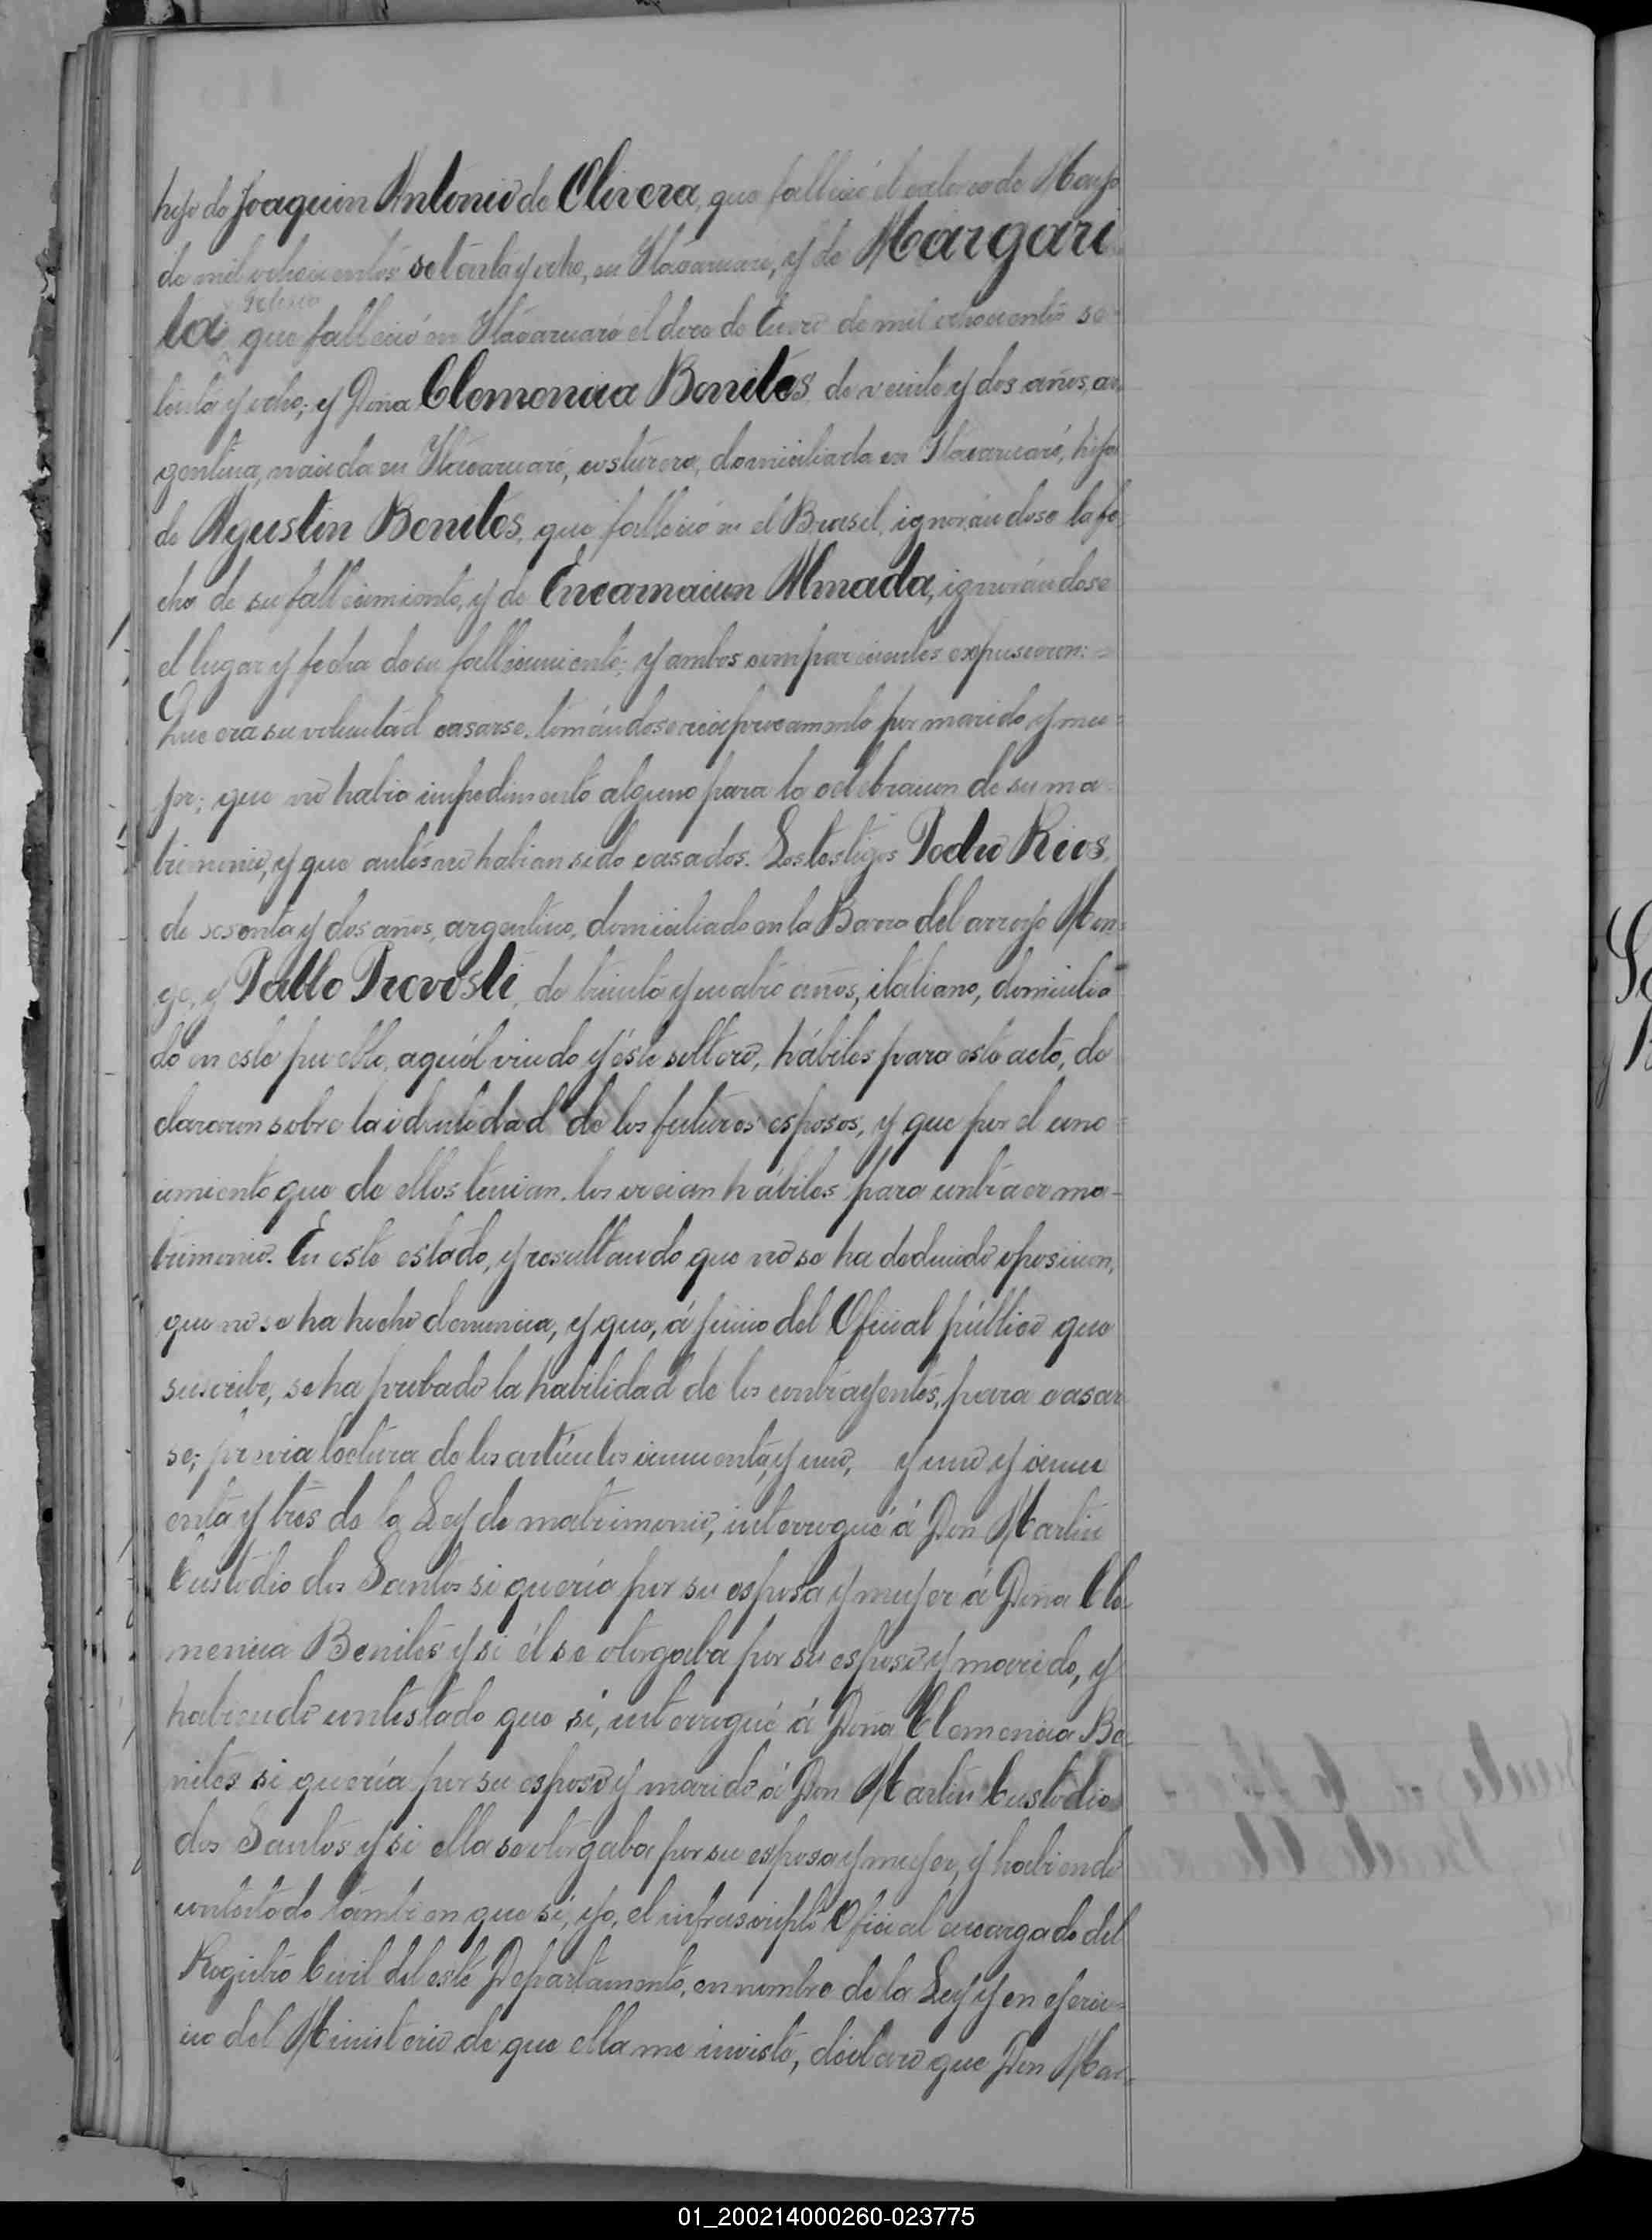 hijo de Joaquin Antonio de Olivera, que falleció el catorce de Mayo
de mil ochocientos setenta y ocho, en Itacaruaré, y de Margari
ta, que falleció en Itacaruaré el doce de Enero de mil ochocientos se-
tenta y ocho; y Doña Clemencia Benites, de veinte y dos años, ar-
gentina, nacida en Itacaruaré, costurera, domiciliada en Itacaruaré, hija
de Agustin Benites, que falleció en el Brasil, ignorándose la fe-
cha de su fallecimiento, y de Encarnacion Almada, ignorándose
el lugar y fecha de su fallecimiento; y ambos comparecientes expusieron:=
Que era su voluntad casarse, tomándose reciprocamente por marido y mu=
jer; que no habia impedimento alguno para la celebracion de su ma-
trimonio, y que antes no habian sido casados. Los testigos Pedro Rios,
de sesenta y dos años, argentino, domiciliado en la Barra del arroyo Mon=
ge, y Pablo Prevosti, de treinta y cuatro años, italiano, domicilia
do en este pueblo, aquél viudo y éste soltero, hábiles para este acto, de
clararon sobre la identidad de los futuros esposos, y que por el cono=
cimiento que de ellos tenian, los creian hábiles para contraer ma-
trimonio. En este estado, y resultando que no se ha deducido oposicion,
que no se ha hecho denuncia, y que, á juicio del Oficial público que
suscribe, se ha probado la habilidad de los contrayentes, para casar
se; prévia lectura de los artículos cincuenta y uno, y uno y cincu
enta y tres de la Ley de matrimonio, interrogué á Don Martin
Custodio dos Santos si quería por su esposa y mujer á Doña Cle-
mencia Benites y si él se otorgaba por su esposo y marido, y
habiendo contestado que si, interrogué á Doña Clemencia Be-
nites si quería por su esposo y marido á Don Martin Custodio
dos Santos y si ella se otorgaba por su esposa y mujer, y habiendo
contestado tambien que si, yo, el infrascripto Oficial encargado del
Registro Civil del este Departamento, en nombre de la Ley y en ejerci=
cio del Ministerio de que ella me inviste, declaro que Don Mar-
01_200214000260-023775